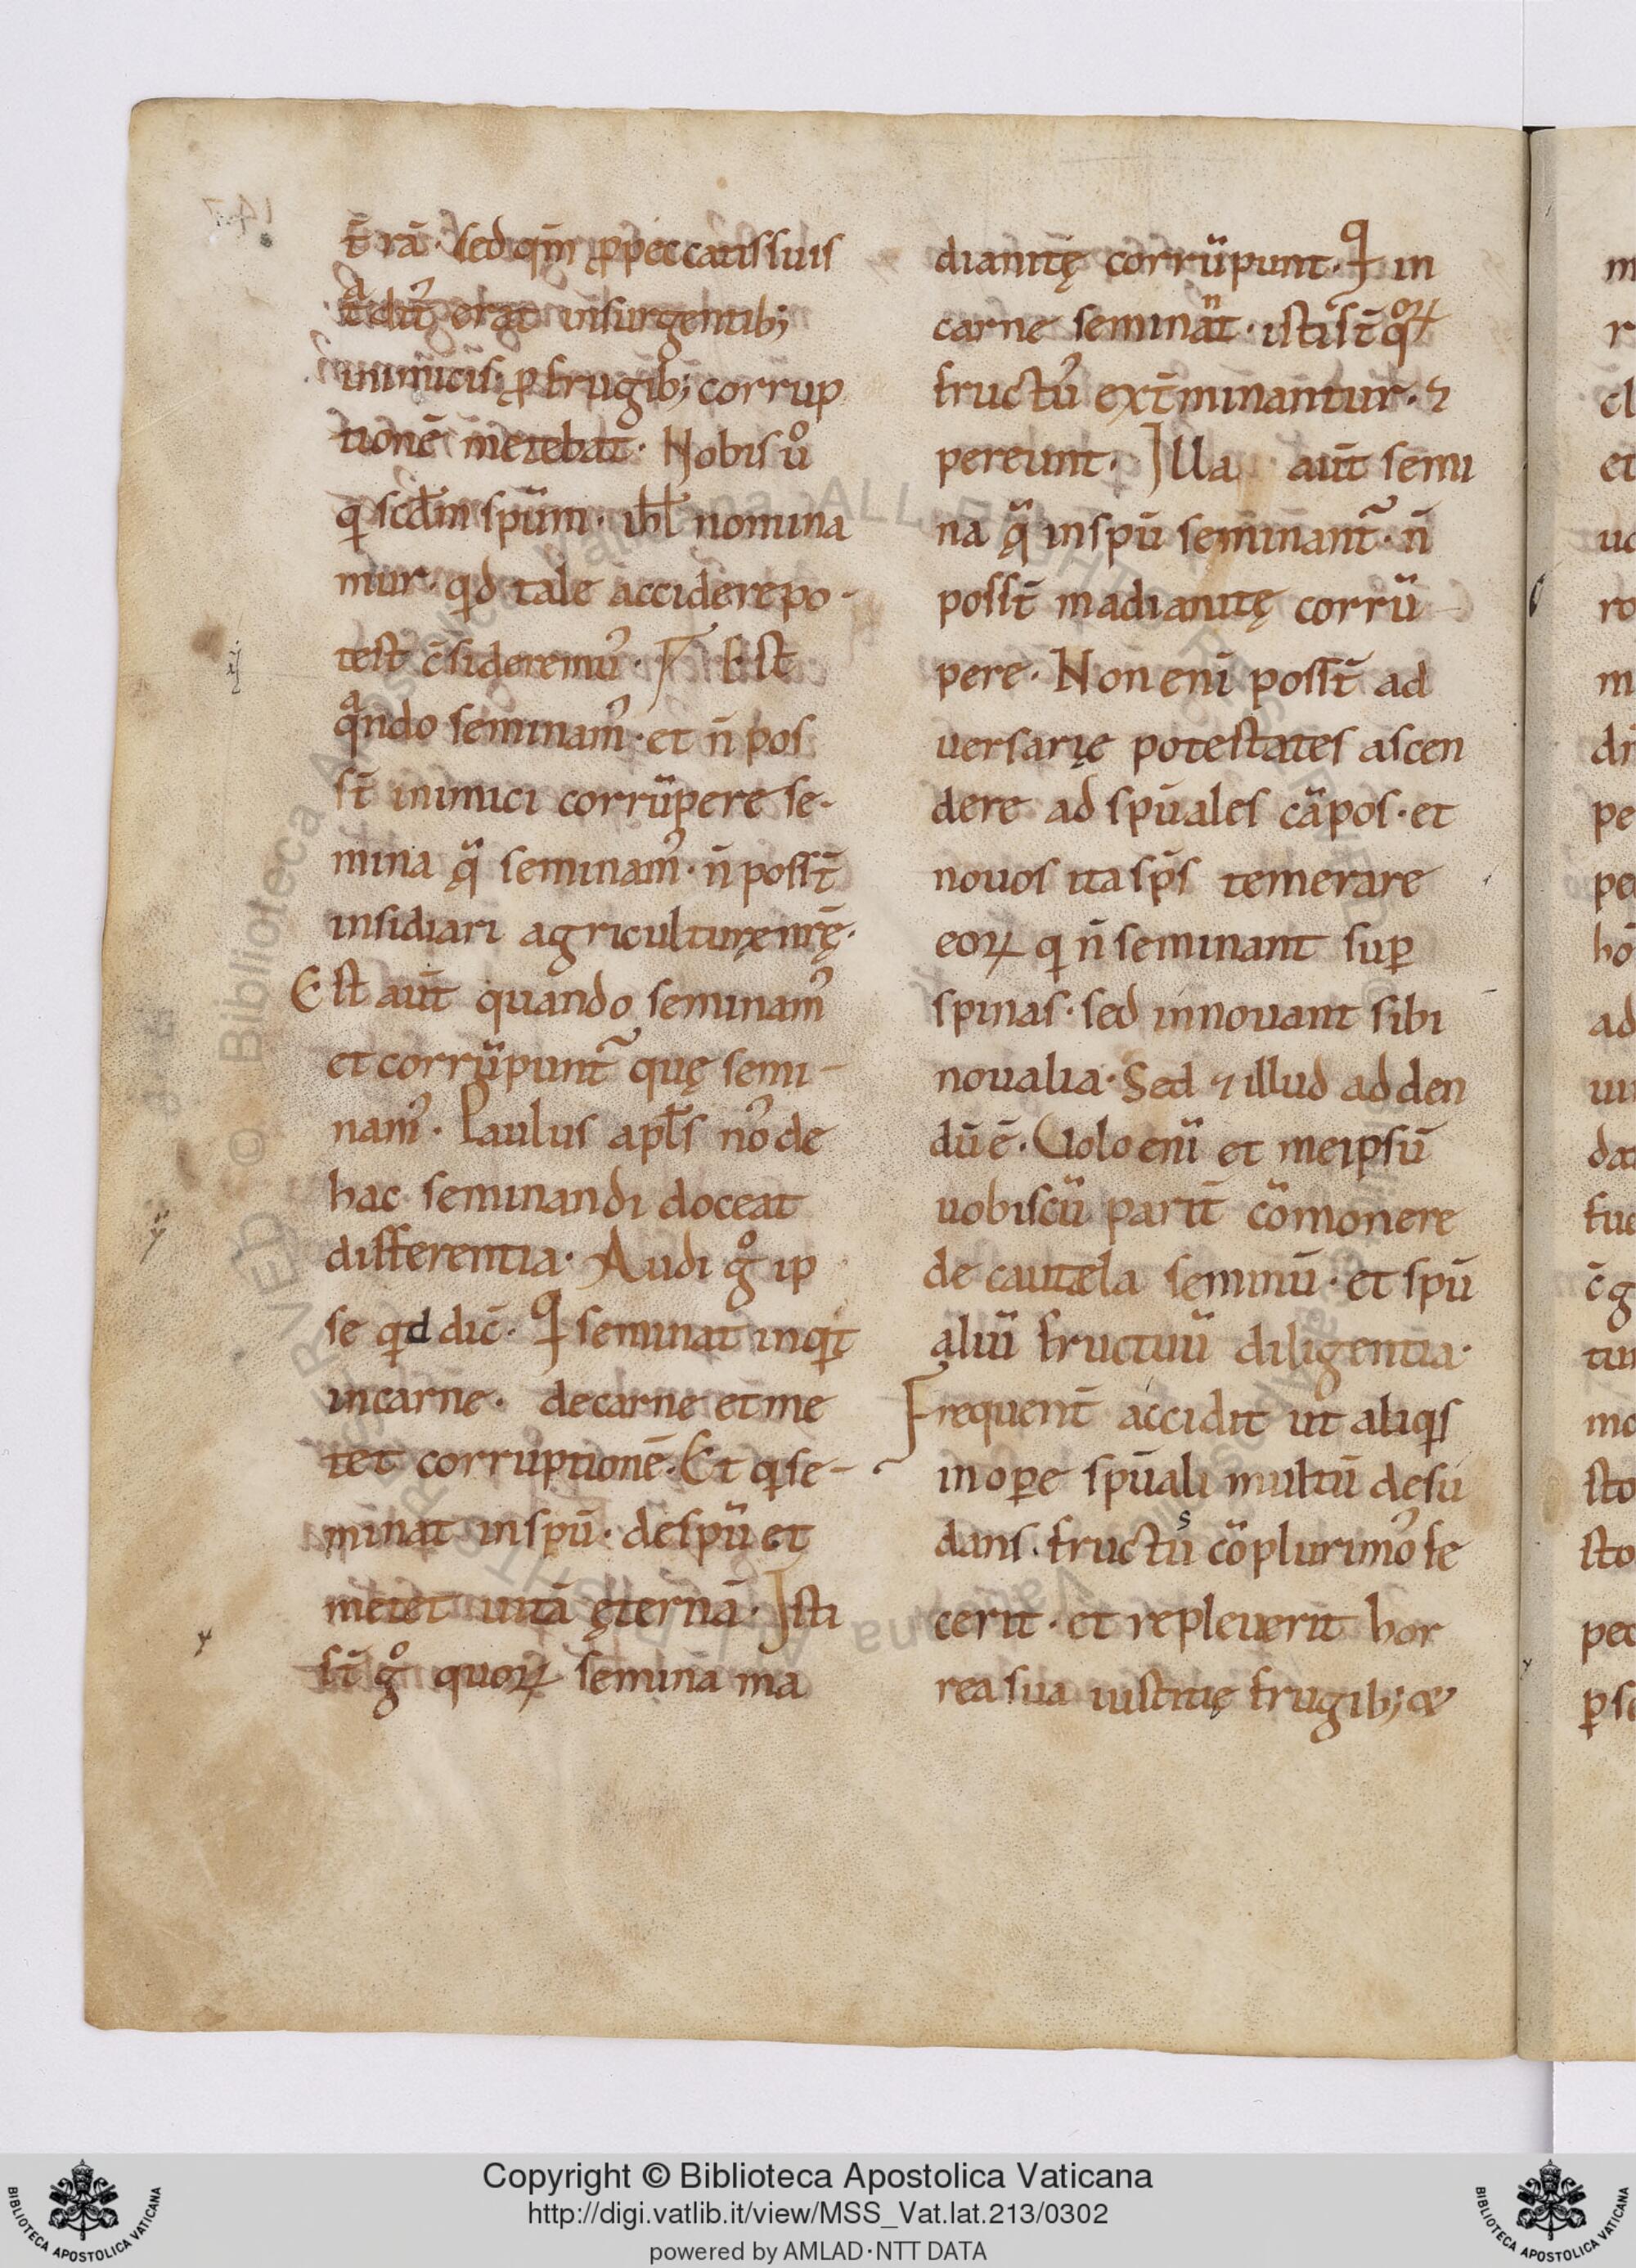 t̄rā· sed qm̄ ꝓ peccatis suis
t̄dit᷒ erat insurgentib;
inimicis. ꝓ frugib; corrup
tionē metebat· Nobis ů
q scdm̄ spūm· ihl̄ nomina
mur· qd tale accidere po-
test c̄sideremu᷒· Est
qᵃndo seminam᷒· et n̄ pos
st̄ inimici corrūpere se-
mina q̄ seminam᷒· n̄ posst̄
insidiari agriculturę nrę̄·
Est aūt quando seminam᷒
et corrūpunt᷑ quę semi-
nam᷒· Paulus apls̄ no᷒ de
hac seminandi doceat
differentia· Audi g̊ ip
se qd dic̄· Q seminat inqt
in carne· de carne et me
tet corruptionē· Et q se-
minat in spū· de spū et
metet uitā ęternā· Isti
st̄ g̊ quoꝝ semina ma
dianitę corrūpunt· Q in
carne seminaⁿt· isti st̄ qͦꝝ
fructu᷒ ext̄minantur· ⁊
pereunt· Illa aūt semi
na q̄ in spū seminant᷑· n̄
posst̄ madianitę corrū
pere· Non enī posst̄ ad
uersarię potestates ascen
dere ad spūales cāpos· et
nouos ita sps̄ temerare
eoꝝ q n̄ seminant suꝑ
spinas· sed innouant sibi
noualia· Sed ⁊ illud adden
dū ē· Uolo enī et meipsū
uobiscū parit̄ cōmonere
de cautela seminū· et spū
aliū fructuū diligentia·
Frequent̄ accidit ut aliqs
in oꝑe spūali multū desu
dans· fructuˢ cōplurimo᷒ fe
cerit· et repleuerit hor
rea sua iustitię frugib;
Copyright © Biblioteca Apostolica Vaticana
http://digi.vatlib.it/view/MSS_Vat.lat.213/0302
powered by AMLAD·NTT DATA
BIBLIOTECA APOSTOLICA VATICANA
BIBLIOTECA APOSTOLICA VATICANA